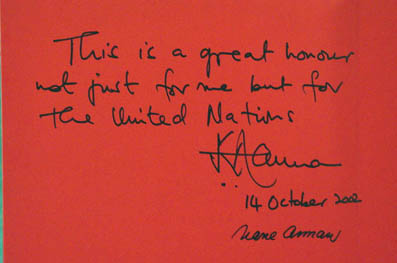 This is a great honour
not just for me but for
the United Nations
K A Annan
14 October 2002
Nane Annan